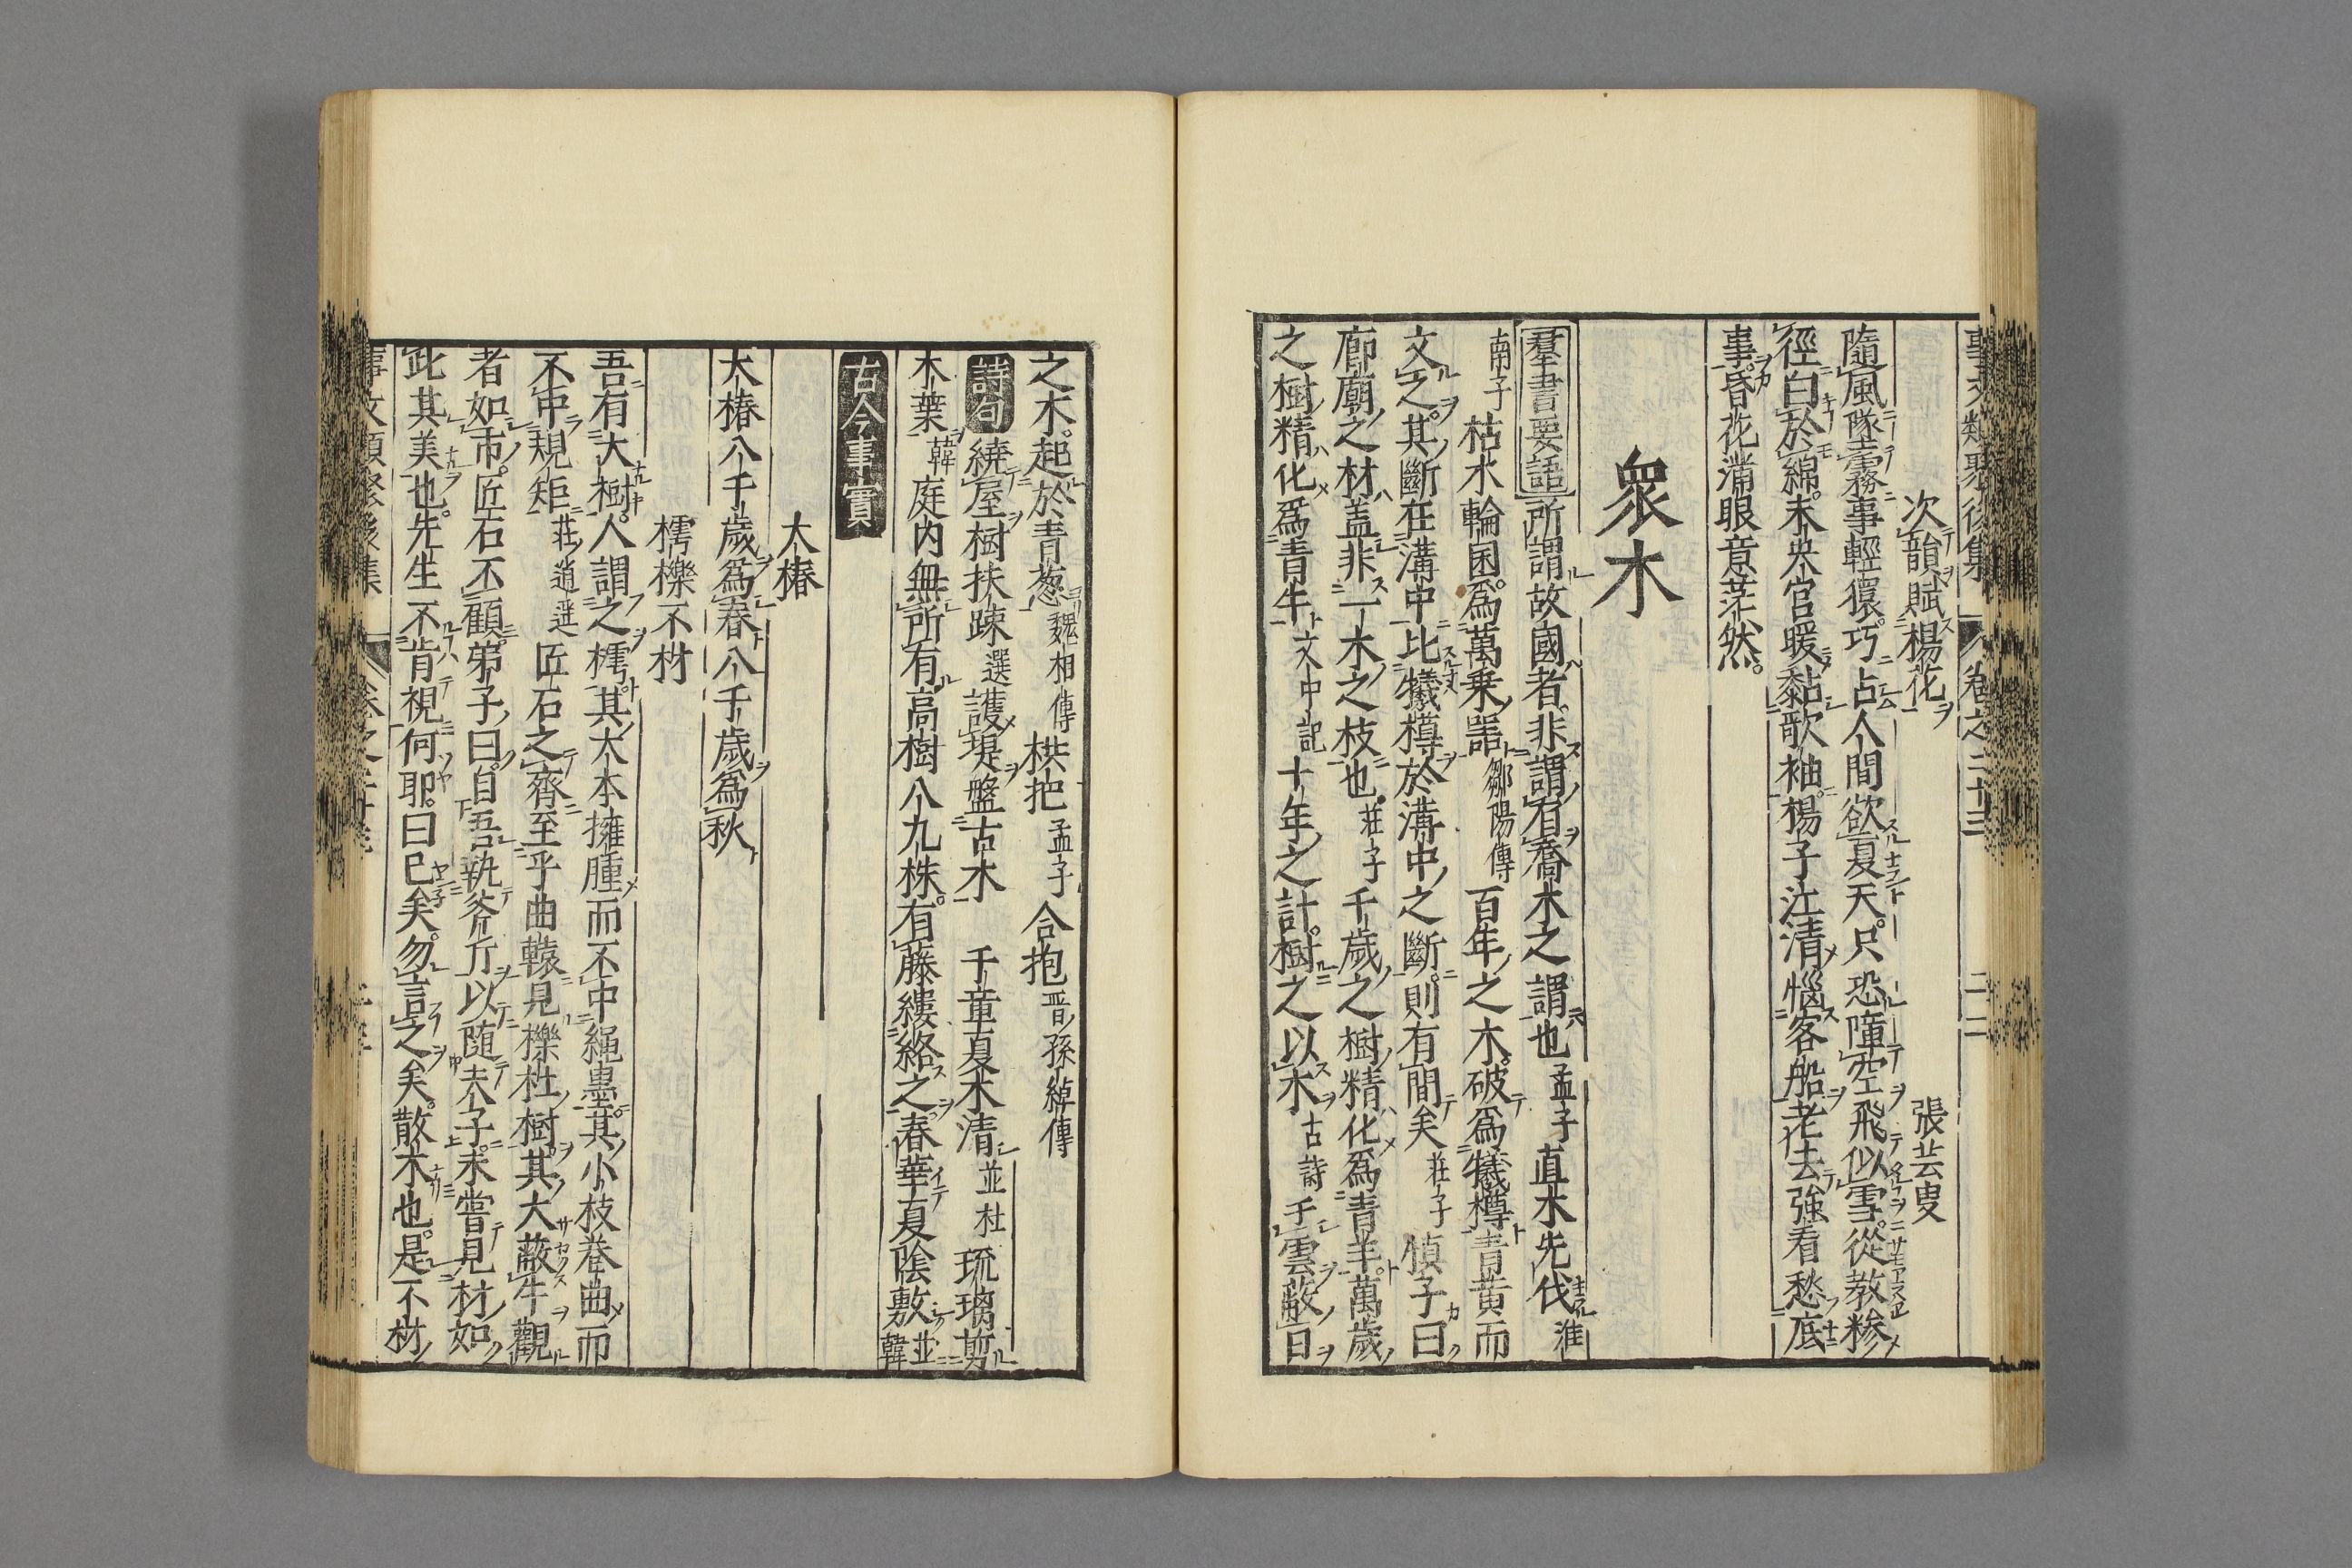 事文類聚後集 卷之二十三 二二
次韻賦楊花 張芸叟
隨風墜霧事輕獧巧占人間欲夏天只恐障空飛似雪從教糝
徑白於綿未央宮暖黏歌袖楊子江清惱客船老去強看愁底
事昏花滿眼意茫然
衆木
羣書要語 所謂故國者非謂有喬木之謂也孟子直木先伐淮
南子枯木輪囷爲萬乗噐鄒陽傳百年之木破爲犧樽青黃而
文之其斷在溝中比犧樽於溝中之斷則有間矣莊子慎子曰
廊廟之材盖非一木之枝也莊子千歲之樹精化爲青羊萬歲
之樹精化爲青牛文中記十年之計樹之以木古詩千雲蔽日
之木起於青葱魏相傳栱把孟子合抱晋孫綽傳
詩句 繞屋樹扶踈選護堤盤古木 千童夏木清並杜琉璃剪
木葉韓庭內無所有高樹八九株有藤縷絡之春華夏陰敷並韓
古今事實
大椿
大椿八千歲爲春八千歲爲秋
樗櫟不材
吾有大樹人謂之樗其大本擁腫而不中繩墨其小枝卷曲而
不中規矩莊逍遥匠石之齊至乎曲轅見櫟社樹其大蔽牛觀
者如市匠石不顧弟子曰自吾執斧斤以随夫子未嘗見材如
此其美也先生不肯視何耶曰已矣勿言之矣散木也是不材